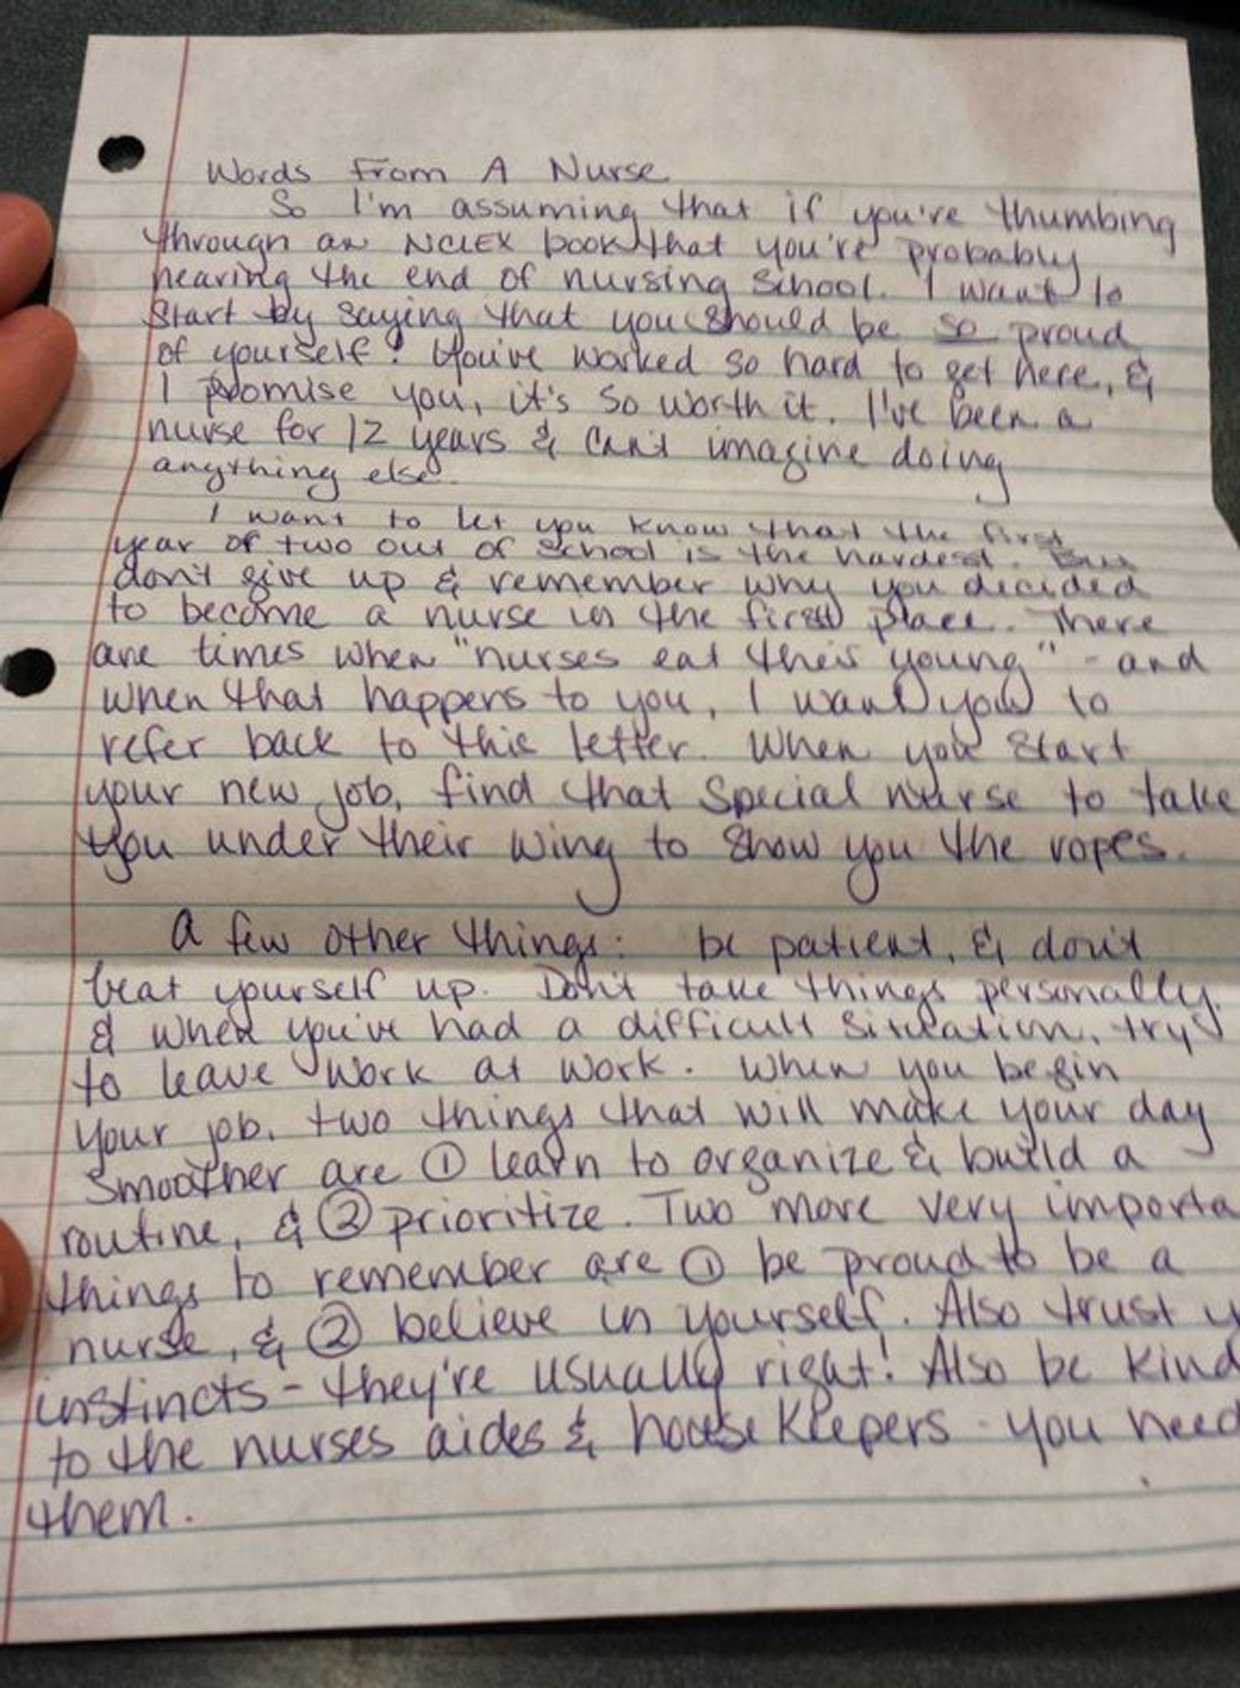 Words From A Nurse
So I'm assuming that if you're thumbing
through an NCLEX book that you're probably
nearing the end of nursing school. I want to
start by saying that you should be so proud
of yourself! You've worked so hard to get here, &
I promise you, it's so worth it. I've been a
nurse for 12 years & can't imagine doing
anything else.
I want to let you know that the first
year or two out of school is the hardest. But
don't give up & remember why you decided
to become a nurse in the first place. There
are times when "nurses eat their young" - and
when that happens to you, I want you to
refer back to this letter. When you start
your new job, find that special nurse to take
you under their wing to show you the ropes.
A few other things: be patient, & don't
beat yourself up. Don't take things personally.
& when you've had a difficult situation, try
to leave work at work. When you begin
your job, two things that will make your day
smoother are ① learn to organize & build a
routine, & ② prioritize. Two more very importa
things to remember are ① be proud to be a
nurse, & ② believe in yourself. Also trust y
instincts - they're usually right! Also be kind
to the nurses aides & housekeepers - you need
them.